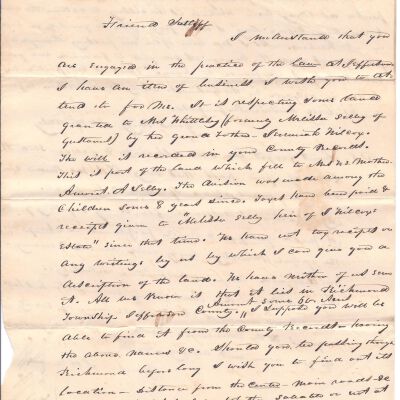 Friend Sutliff
I understand that you
are engaged in the practice of the law at Jefferson
I have an item of business I wish you to at
tend to for me. It is respecting some land
granted to Mrs Whittlesey (formerly Melissa Selby of
by her grand father Jeremiah Wilcox.
The will is recorded in your County Records.
This is part of the land which fell to Mrs W's Mother
A Selby. The division was made among the
Children some 8 years since. Taxes have been paid &
receipts given to "Melissa Selby heir of J Wilcox
Estate" since that time. We have not tax receipts or
any writings by us by which I can give you a
description of the land. We have neither of us seen
it. All we know is that it lies in Richmond
Amount some 60 Acres
Township Jefferson County. I suppose you will be
able to find it from the County Records - having
the above names &c. Should you be passing through
Richmond before long I wish you to find out its
location - distance from the Center - main roads &c